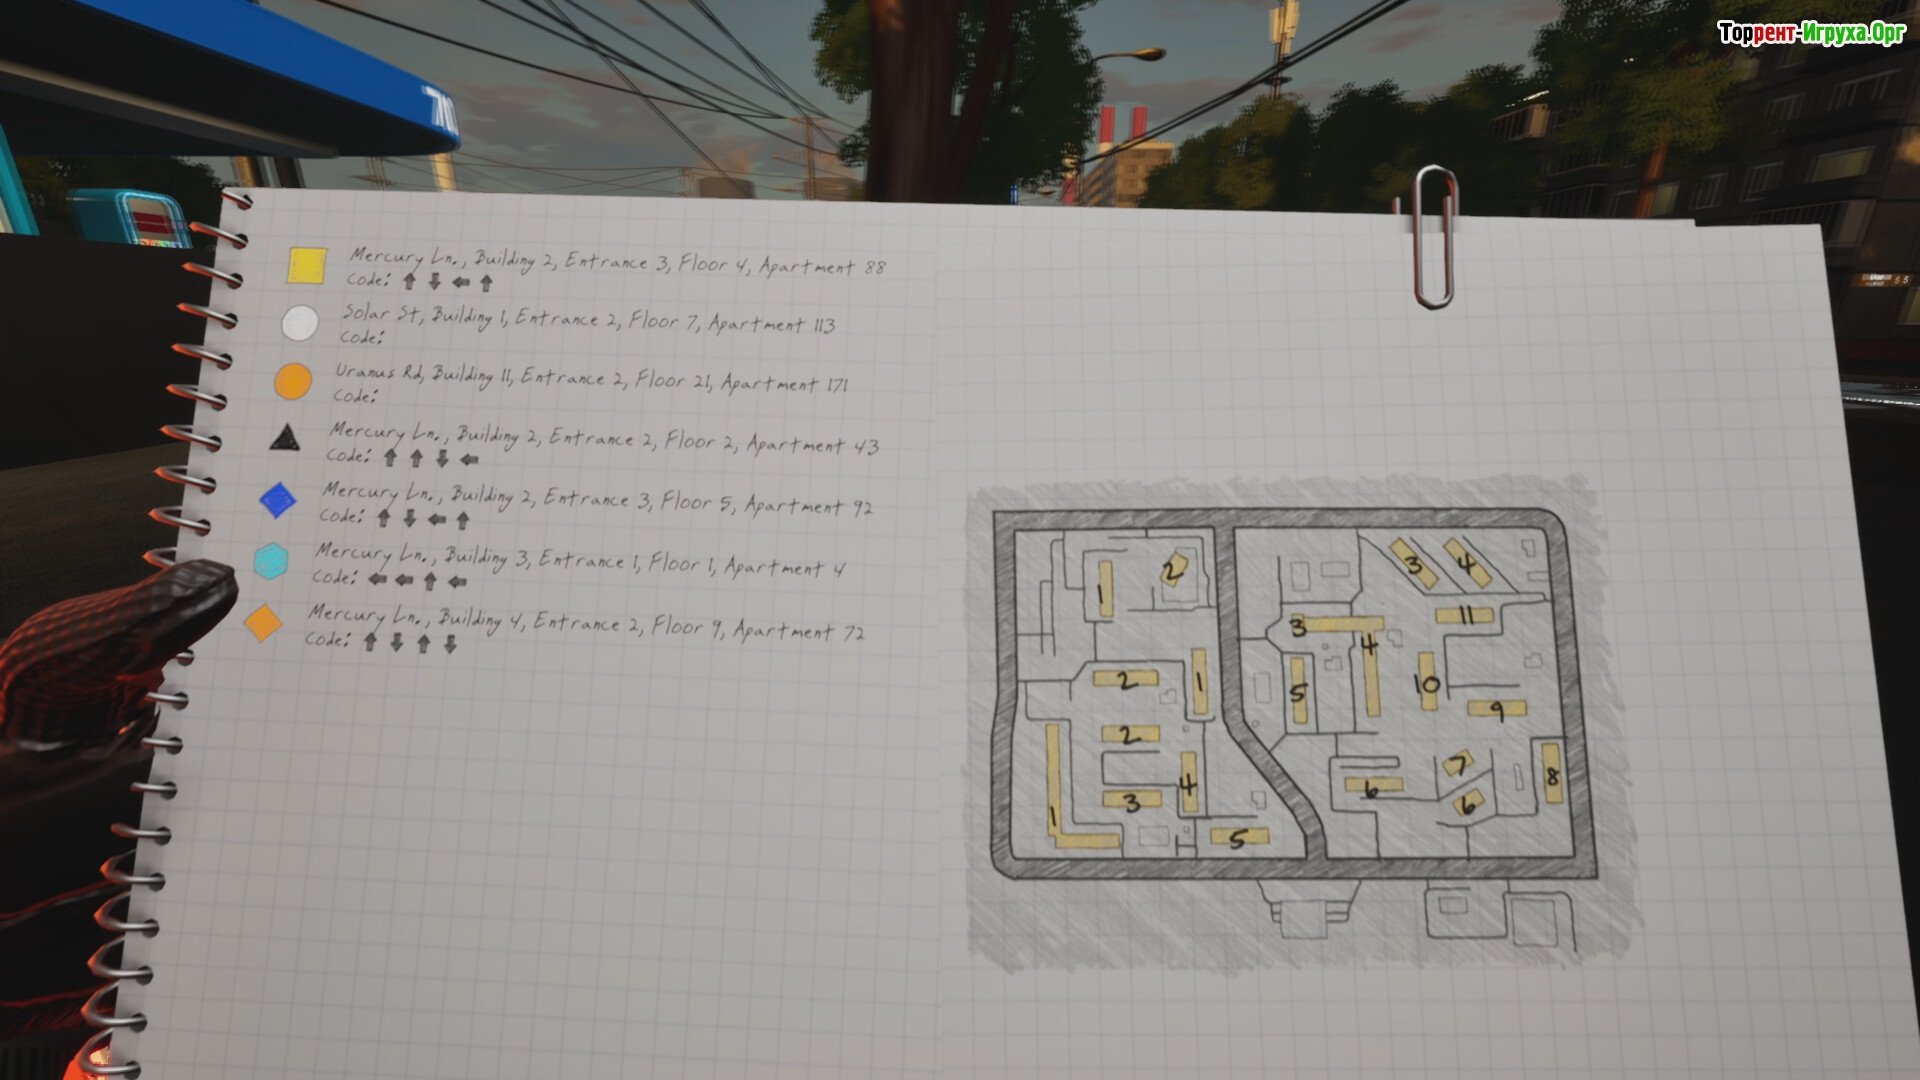 Торрент-Игруха.Орг
Mercury Ln., Building 2, Entrance 3, Floor 4, Apartment 88
Code: ↑ ↓ ← ↑
Solar St, Building 1, Entrance 2, Floor 7, Apartment 113
Code:
Uranus Rd, Building 11, Entrance 2, Floor 21, Apartment 171
Code:
Mercury Ln., Building 2, Entrance 2, Floor 2, Apartment 43
Code: ↑ ↑ ↓ ←
Mercury Ln., Building 2, Entrance 3, Floor 5, Apartment 92
Code: ↑ ↓ ← ↑
Mercury Ln., Building 3, Entrance 1, Floor 1, Apartment 4
Code: ← ← ↑ ←
Mercury Ln., Building 4, Entrance 2, Floor 9, Apartment 72
Code: ↑ ↓ ↑ ↓
1 2 3 4
3 4 11
2 1 5 10 9
2
1 3 4 5
6 7 6 8